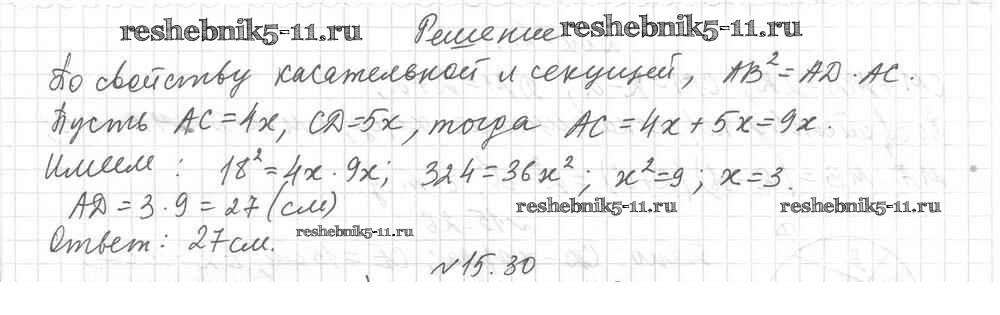 reshebnik5-11.ru Решение reshebnik5-11.ru
По свойству касательной и секущей, AB²=AD·AC.
Пусть AC=4x, CD=5x, тогда AC=4x+5x=9x.
Имеем: 18²=4x·9x; 324=36x²; x²=9; x=3.
AD=3·9=27(см) reshebnik5-11.ru reshebnik5-11.ru
Ответ: 27см. reshebnik5-11.ru
№15.30